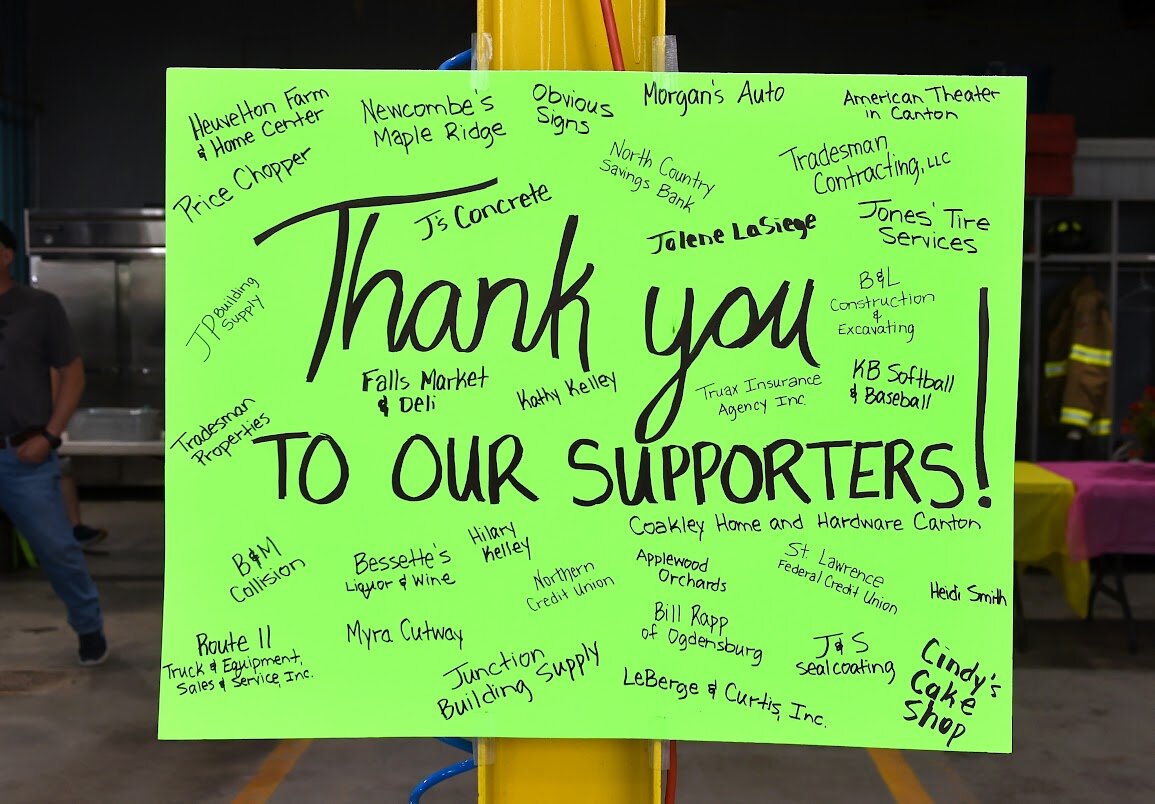 Heuvelton Farm
& Home Center
Newcombe's
Maple Ridge
Obvious
Signs
Morgan's Auto
American Theater
in Canton
Price Chopper
North Country
Savings Bank
Tradesman
Contracting, LLC
J's Concrete
Jolene LaSiege
Jones' Tire
Services
JP Building
Supply
Thank you
B&L
Construction
&
Excavating
Falls Market
& Deli
Kathy Kelley
Truax Insurance
Agency Inc.
KB Softball
& Baseball
Tradesman
Properties
TO OUR SUPPORTERS!
Coakley Home and Hardware Canton
B&M
Collision
Bessette's
Liquor & Wine
Hilary
Kelley
Northern
Credit Union
Applewood
Orchards
St. Lawrence
Federal Credit Union
Heidi Smith
Route 11
Truck & Equipment,
Sales & Service, Inc.
Myra Cutway
Junction
Building Supply
Bill Rapp
of Ogdensburg
J&S
Sealcoating
LeBerge & Curtis, Inc.
Cindy's
Cake
Shop